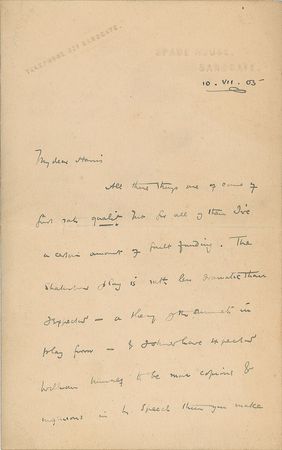 TELEPHONE 227 SANDGATE.
SPADE HOUSE,
SANDGATE.
10. VII. 05
My dear Harris
All these things are of course of
first rate quality but for all of them I've
a certain amount of fault finding. The
Shakespeare play is rather less dramatic than
I expected — a theory of the Sonnets in
play form — & I should have expected
William himself to be more copious &
vigorous in his speech than you make